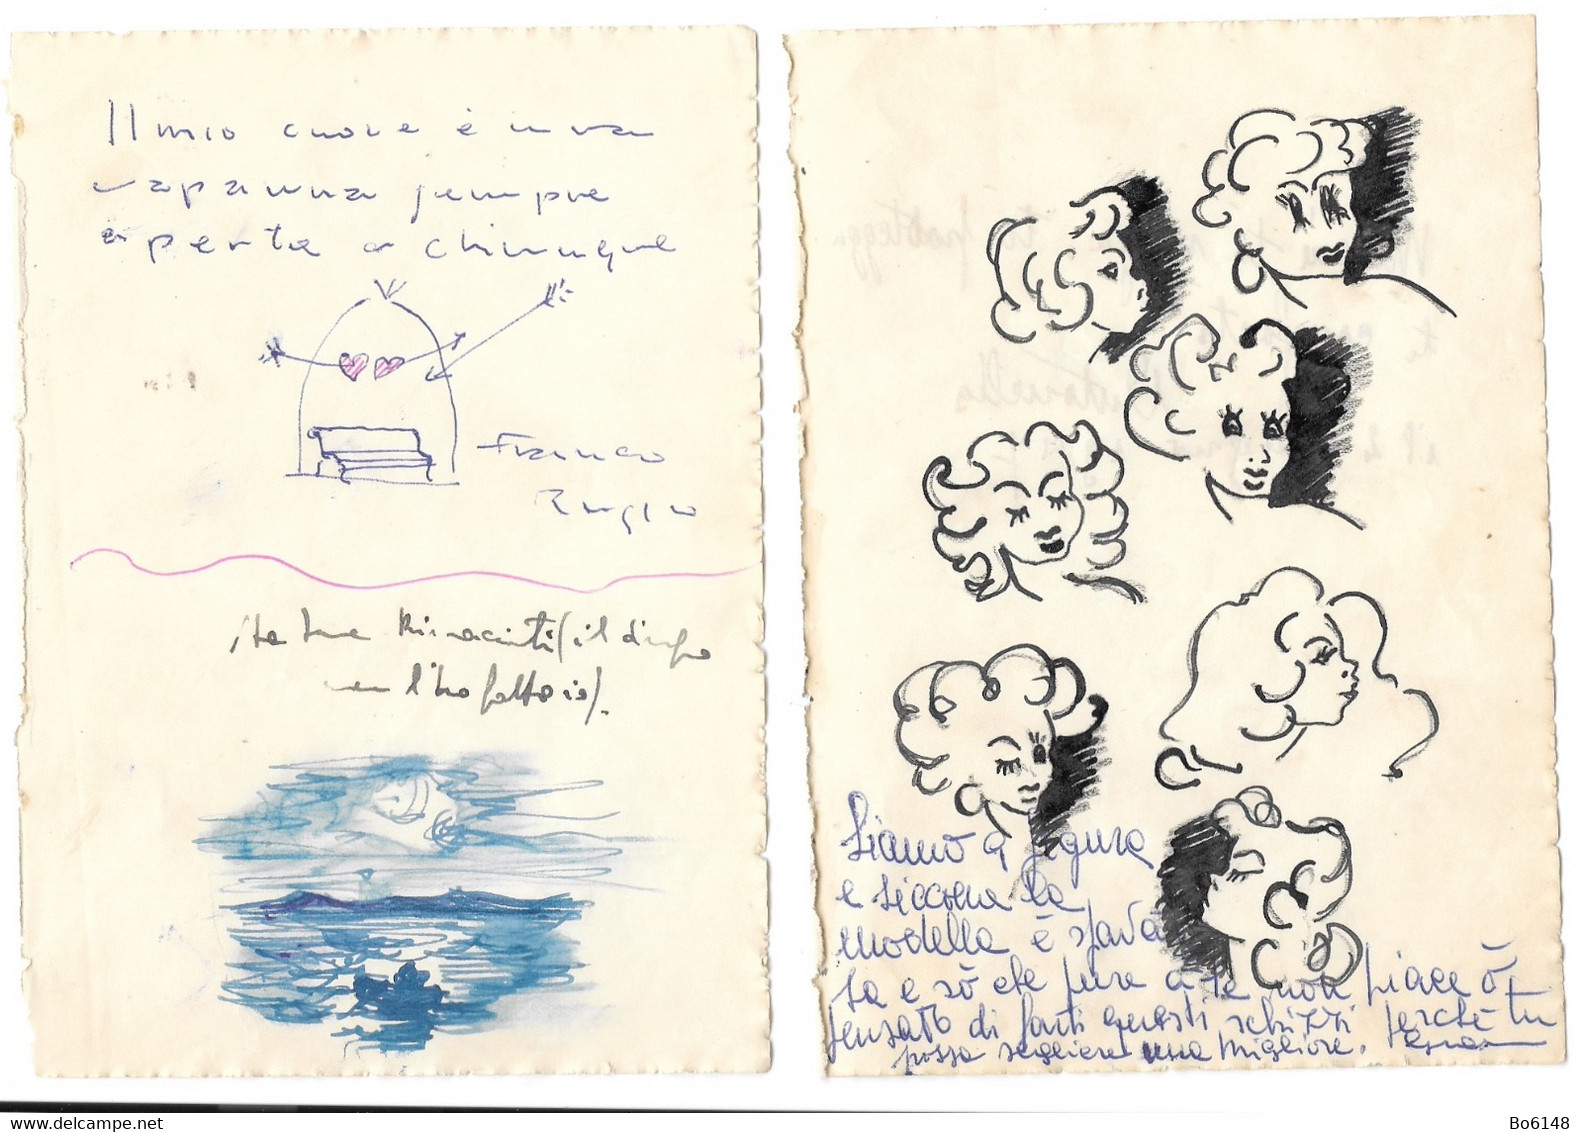 Il mio cuore è una
capanna sempre
aperta a chiunque
Franco
(il disegno
non l'ho fatto io).
Siamo a figura
e siccome la
modella è spara
ta e sò che pure a te non piace ò
pensato di farti questi schizzi perchè tu
possa scegliere una migliore.
ti protegga
Antonella
il 2
Bo6148